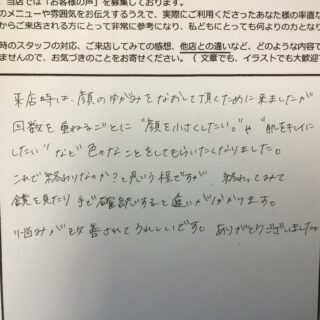 、当店では「お客様の声」を募集しております。
のメニューや雰囲気をお伝えするうえで、実際にご利用くださったあなた様の率直な
からご来店される方にとって非常に参考になり、私どもにとっても何よりの力となり
時のスタッフの対応、ご来店してみての感想、他店との違いなど、どのような内容で
ませんので、お気づきのことをお寄せください。（文章でも、イラストでも大歓迎
来店時は、顔のゆがみをなおして頂くために来ましたが
回数を重ねるごとに“顔を小さくしたい。”や“肌をキレイに
したい”など色々なことをしてもらいたくなりました。
これで終わりなのか？と思う程ですが、終わってみて
鏡を見たり手で確認すると違いがわかります。
悩みが改善されてうれしいです。ありがとうございました。